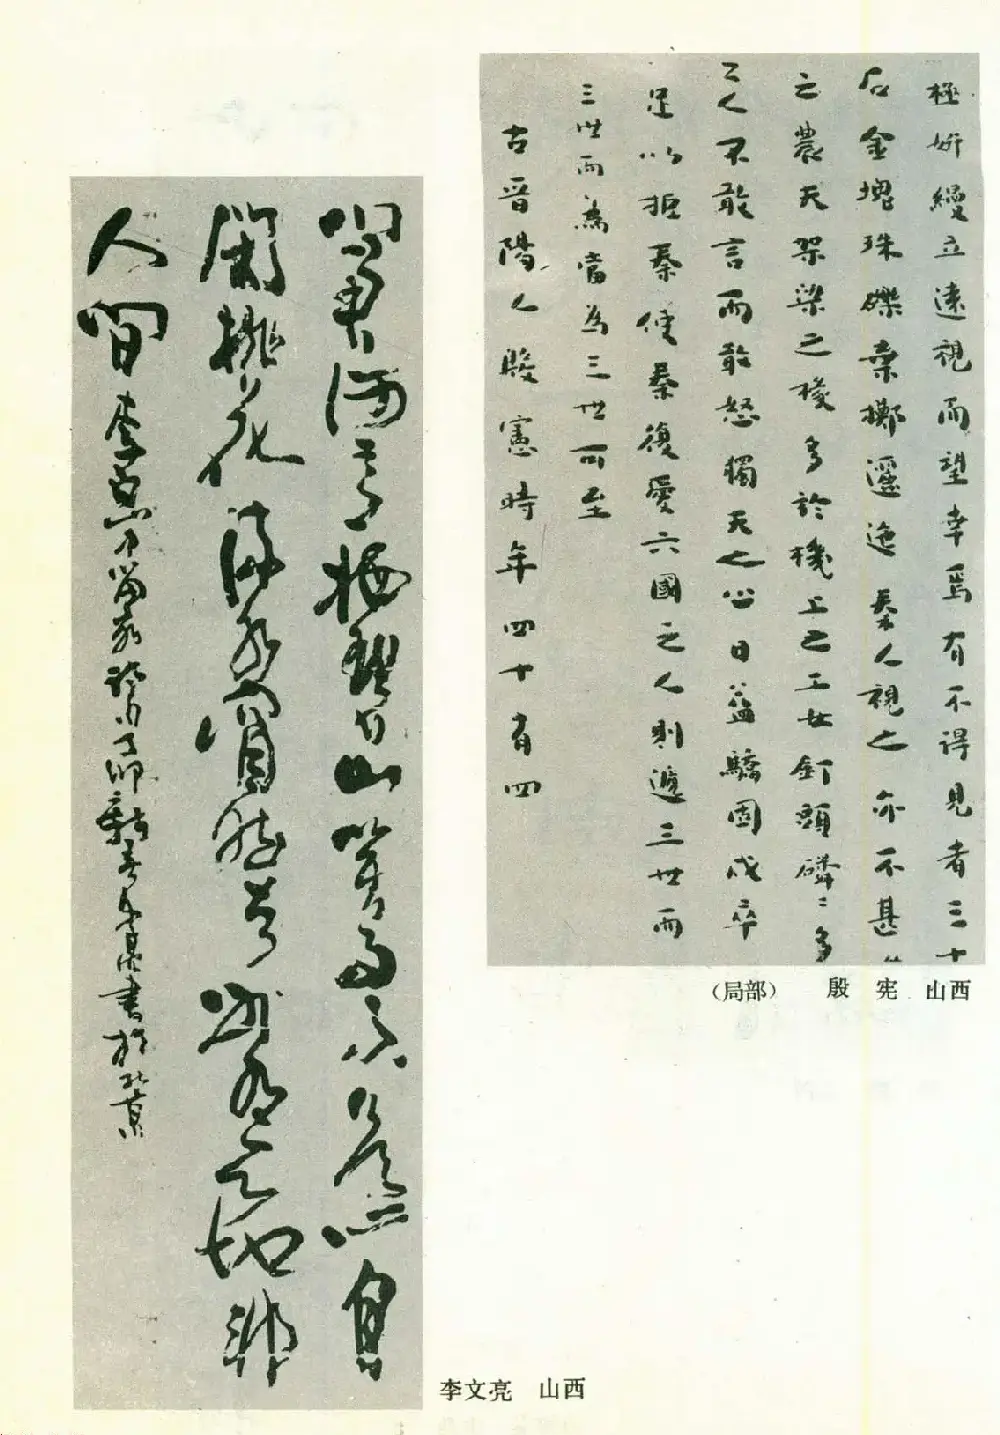 極妍縵立遠視而望幸焉有不得見者三十
石金塊珠礫棄擲邐迤秦人視之亦不甚
之農夫架梁之椽多於機上之工女釘頭磷〻多
之人不敢言而敢怒獨夫之心日益驕固戍卒
足以拒秦使秦復愛六國之人則遞三世而
三世而為當為三世可至
古晉陽人殷憲時年四十有四
(局部) 殷 宪 山西
栖碧山笑而不答心自
閑桃花流水窅然去別有天地非
人間
李文亮 山西